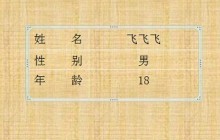 姓 名 飞飞飞
性 别 男
年 龄 18